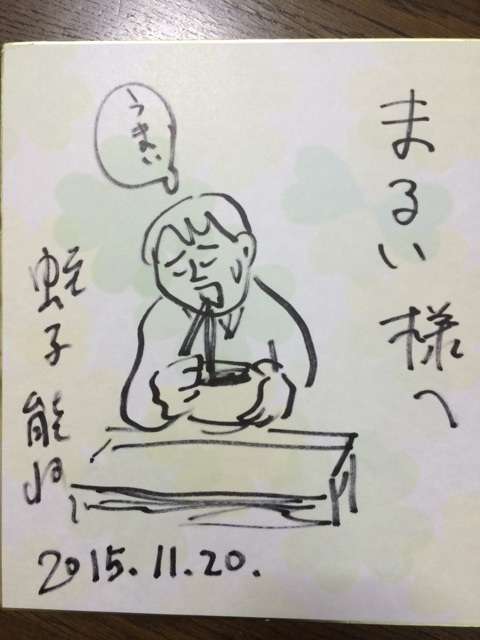 まるい様へ
うまい
蛭子能収
2015.11.20.